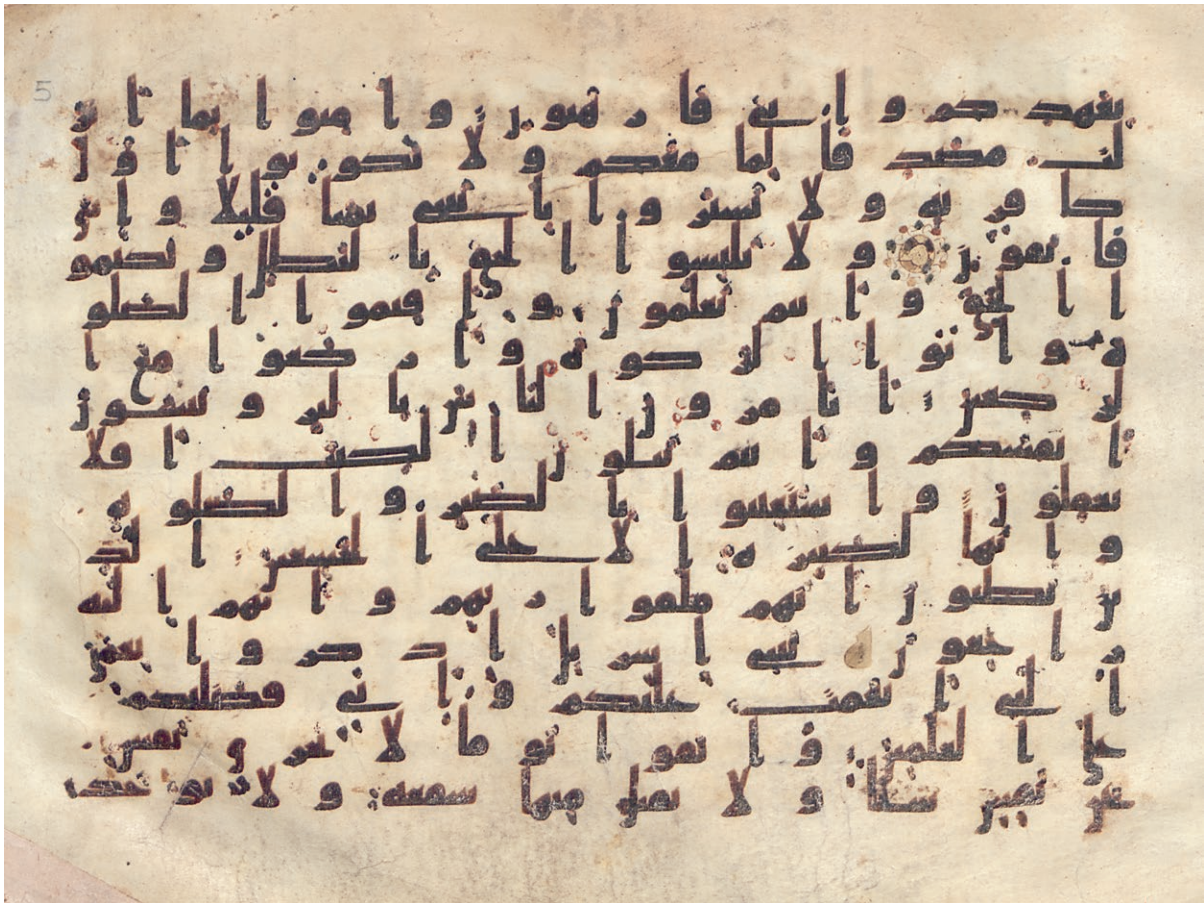 5
بعهدكم و ايى فارهبون و امنوا بما انز
لت مصدقا لما معكم و لا تكونوا اول
كافر به و لا تشتروا بايتى ثمنا قليلا و ايى
فاتقون و لا تلبسوا الحق بالبطل و تكتمو
ا الحق و انتم تعلمون و اقيموا الصلو
ة و اتوا الزكوة و اركعوا مع ا
لركعين اتامرون الناس بالبر و تنسون
انفسكم و انتم تتلون الكتب افلا
تعقلون و استعينوا بالصبر و الصلوة
و انها لكبيرة الا على الخشعين الذ
ين يظنون انهم ملقوا ربهم و انهم اليه
رجعون يبنى اسريل اذكروا نعمتى
التى انعمت عليكم و انى فضلتكم
على العلمين و اتقوا يوما لا تجزى نفس
عن نفس شيئا و لا يقبل منها شفعة و لا يوخذ